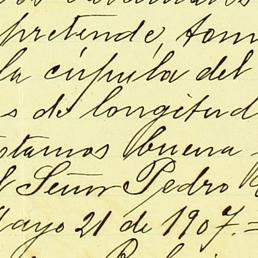 pretende, tom
la cúpula del
s de longitud
stamos buena
l Señor Pedro
Mayo 21 de 1907.=